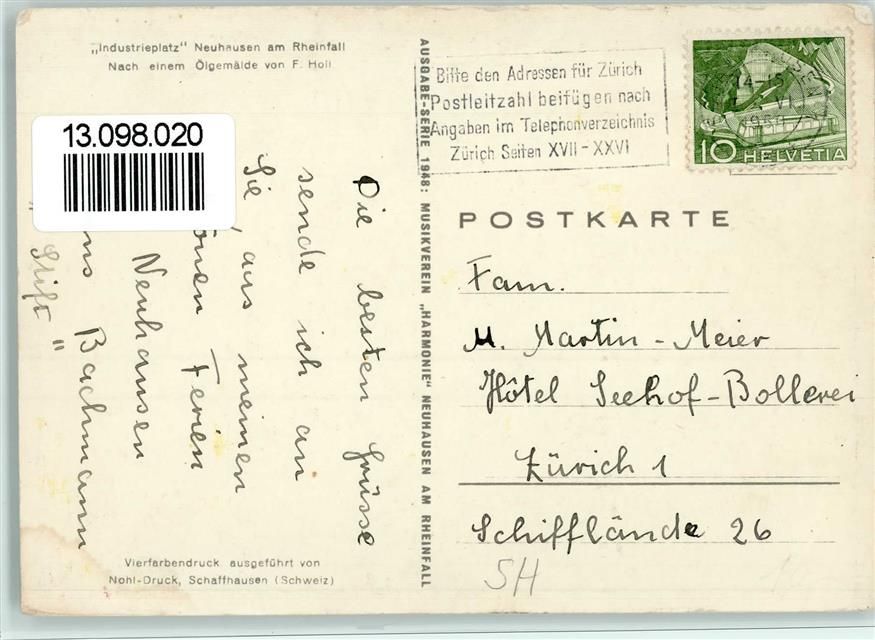 „Industrieplatz" Neuhausen am Rheinfall
Nach einem Ölgemälde von F. Holl
13.098.020
Die besten Grüsse
sende ich an
Sie, aus meinen
Ferien
Neuhausen
Bachmann
„Stift"
Vierfarbendruck ausgeführt von
Nohl-Druck, Schaffhausen (Schweiz)
AUSGABE-SERIE 1948: MUSIKVEREIN „HARMONIE" NEUHAUSEN AM RHEINFALL
Bitte den Adressen für Zürich
Postleitzahl beifügen nach
Angaben im Telephonverzeichnis
Zürich Seiten XVII-XXVI
10 HELVETIA
POSTKARTE
Fam.
M. Martin-Meier
Hôtel Seehof-Bollerei
Zürich 1
Schifflände 26
SH